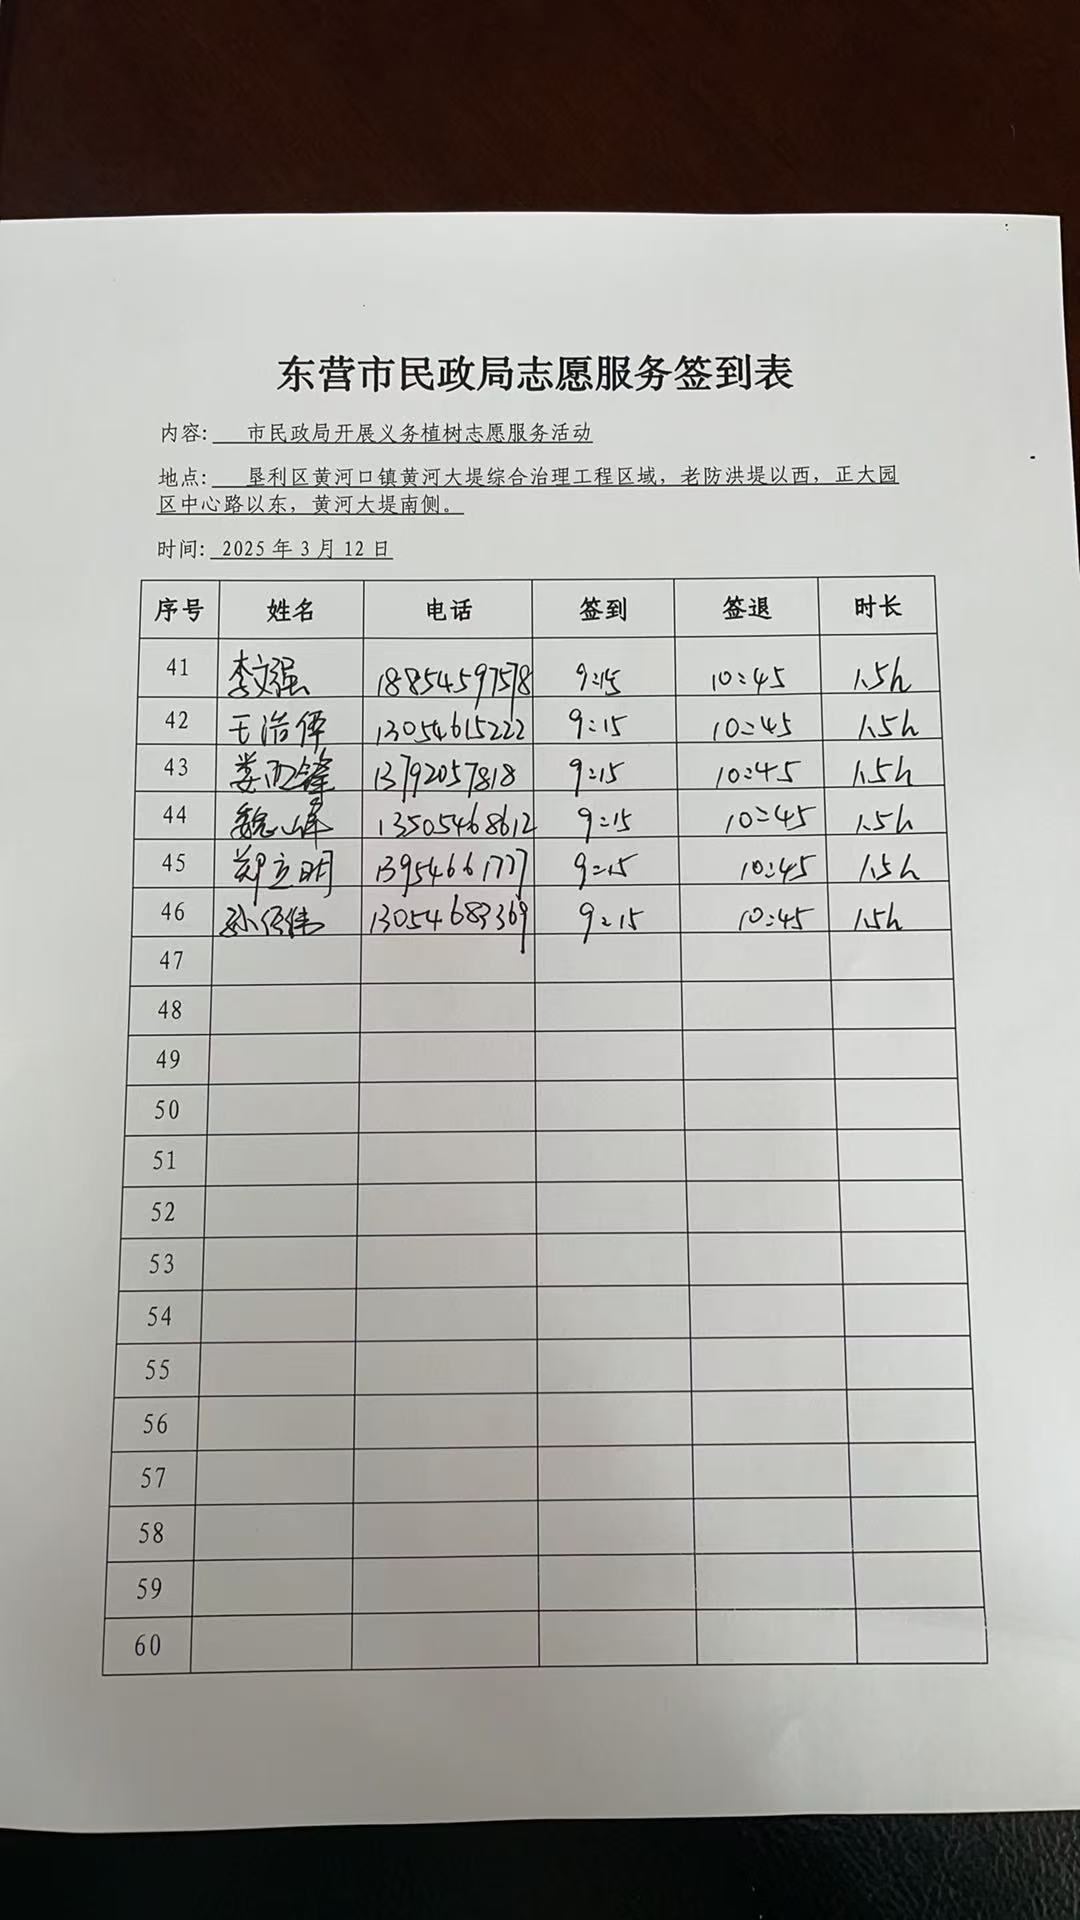 东营市民政局志愿服务签到表
内容: 市民政局开展义务植树志愿服务活动
地点: 垦利区黄河口镇黄河大堤综合治理工程区域，老防洪堤以西，正大园
区中心路以东，黄河大堤南侧。
时间: 2025年3月12日
序号 姓名 电话 签到 签退 时长
41 李文强 18854597578 9:15 10:45 1.5h
42 王治 13054615222 9:15 10:45 1.5h
43 娄 锋 13792057818 9:15 10:45 1.5h
44 魏峰 13505468612 9:15 10:45 1.5h
45 郑立明 13954661777 9:15 10:45 1.5h
46 孙 伟 13054683369 9:15 10:45 1.5h
47
48
49
50
51
52
53
54
55
56
57
58
59
60